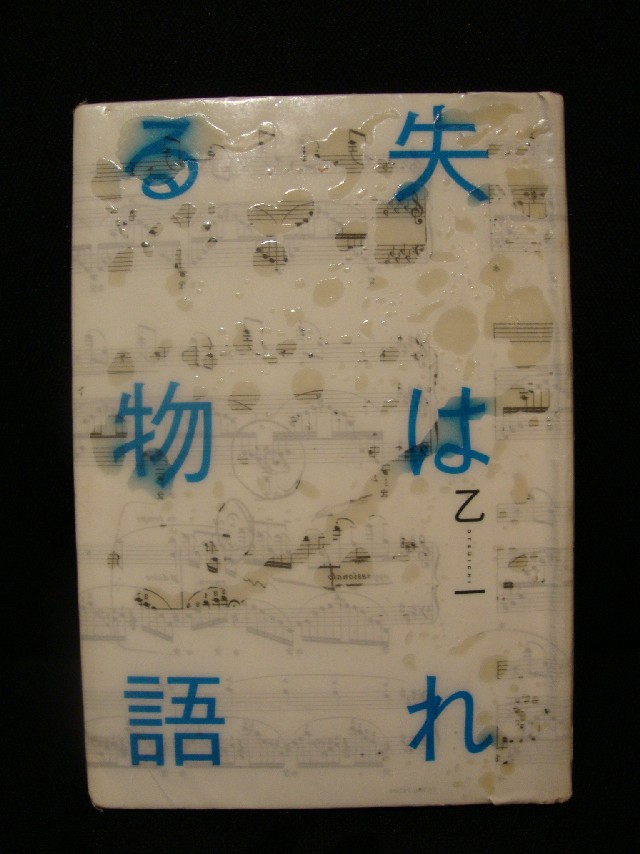 失はれ
る物語
乙一
OTSUICHI